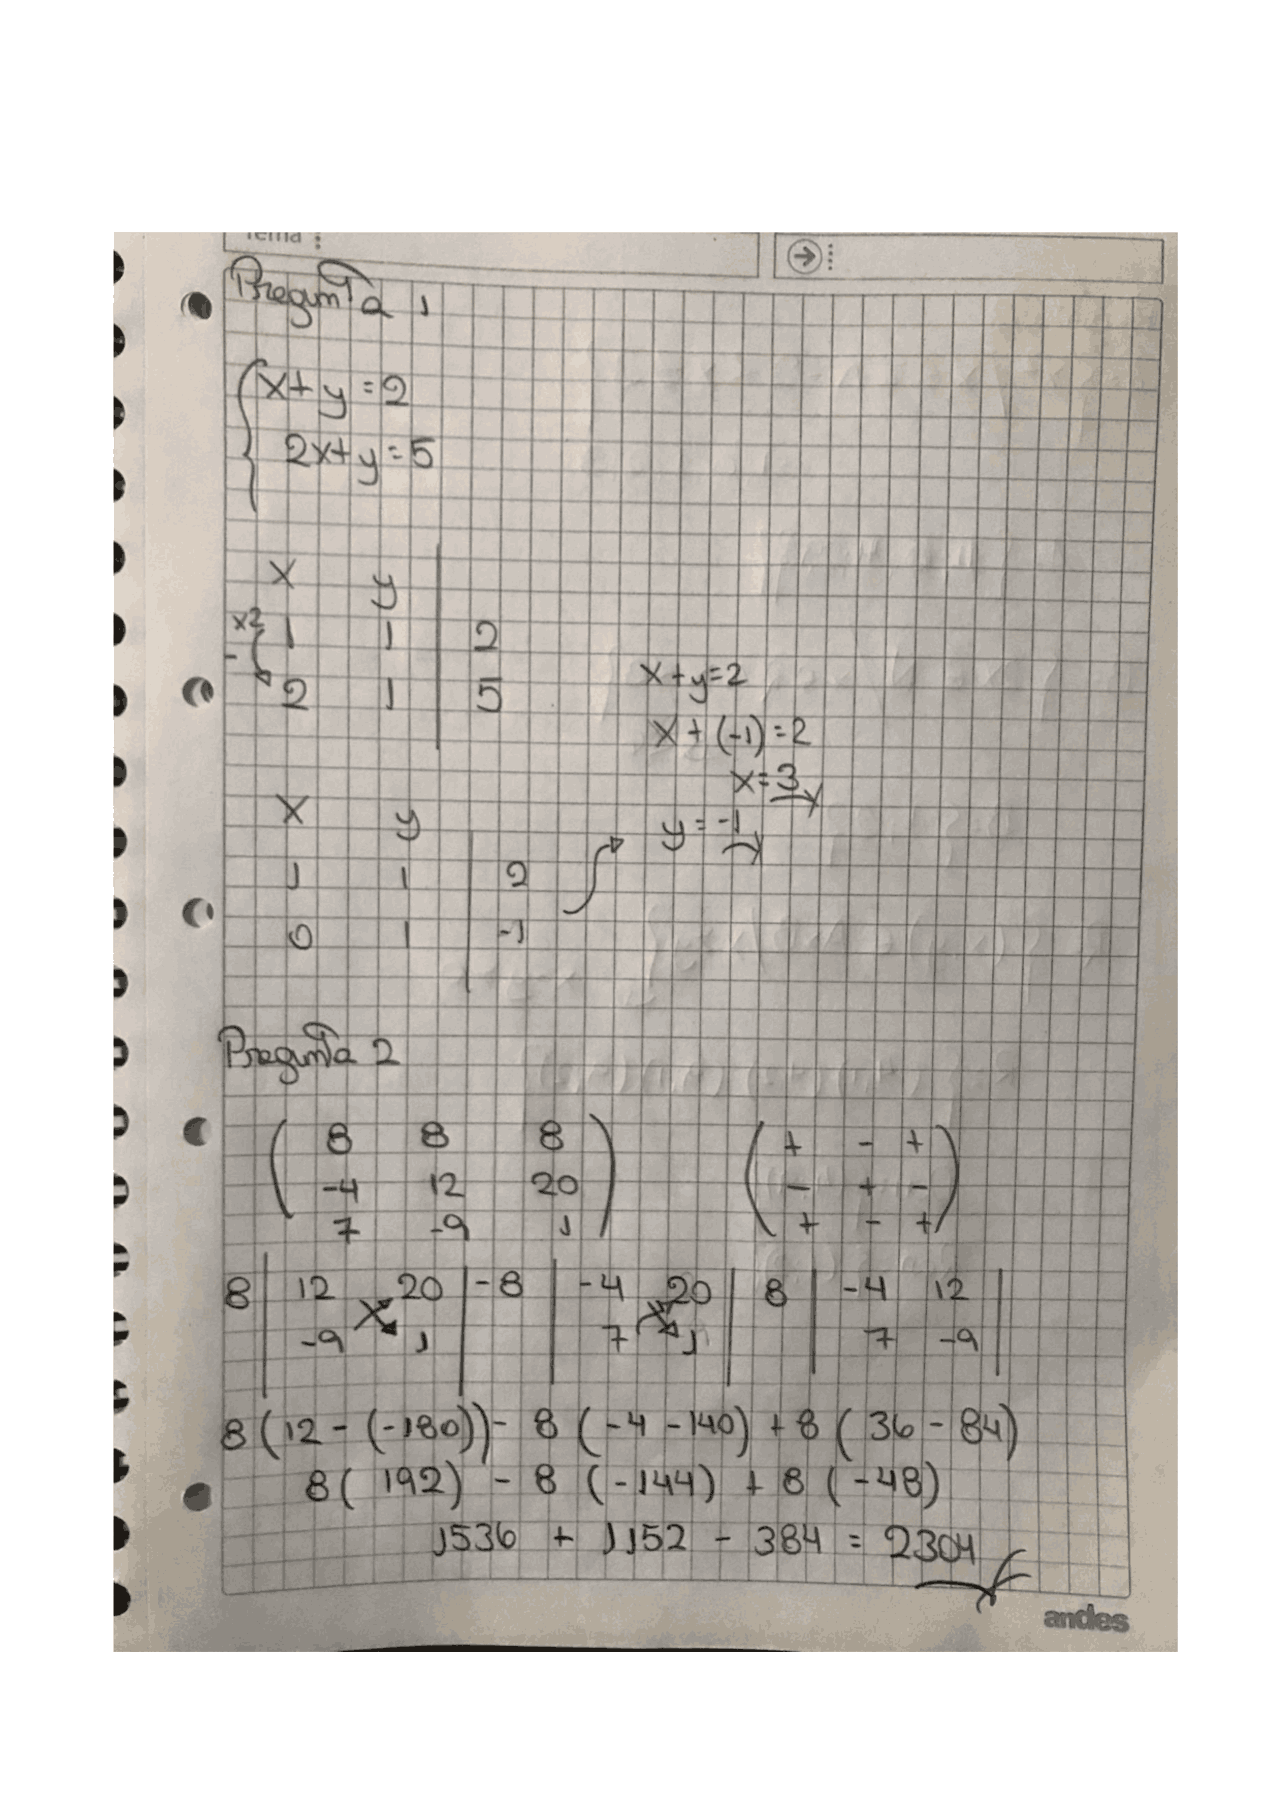 Tema :
Pregunta 1
x+y=2
2x+y=5
x y
x2 1 1 2
- 2 1 5
x+y=2
x+(-1)=2
x=3
y=-1
x y
1 1 2
0 1 -1
Pregunta 2
8 8 8
-4 12 20
7 -9 1
+ - +
- + -
+ - +
8 | 12 20 | -8 | -4 20 | 8 | -4 12 |
| -9 1 | | 7 1 | | 7 -9 |
8(12-(-180))-8(-4-140)+8(36-84)
8(192)-8(-144)+8(-48)
1536+1152-384=2304
andes